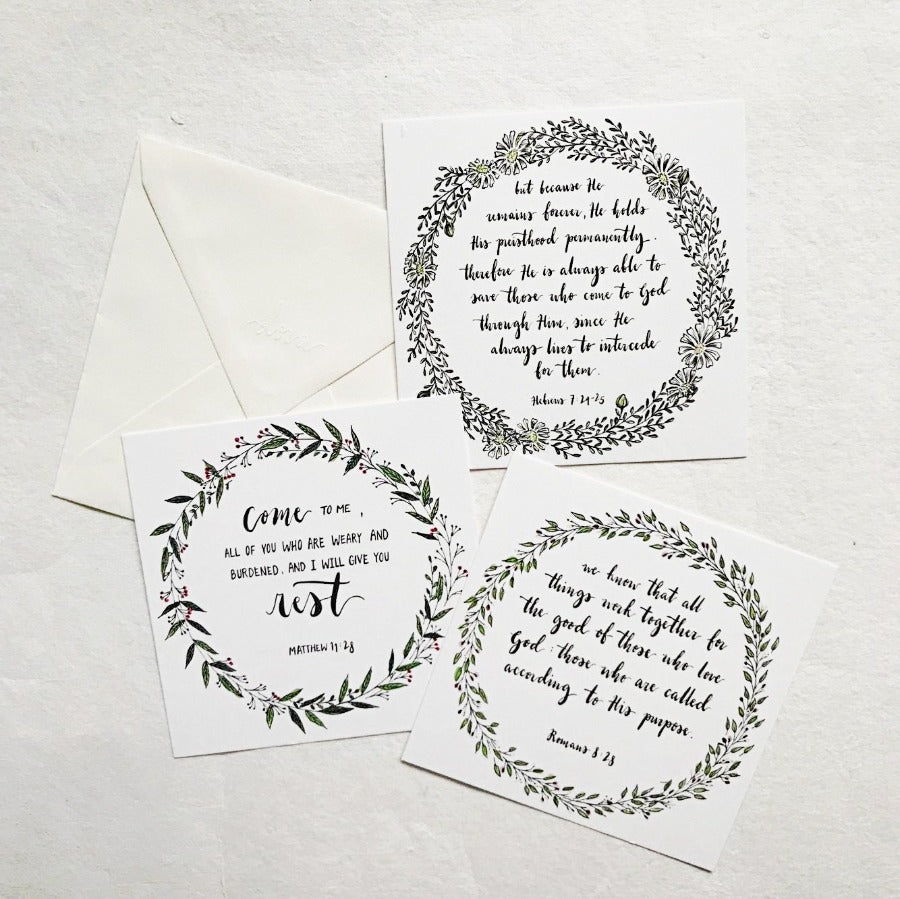 but because He
remains forever, He holds
His preisthood permanently.
therefore He is always able to
save those who come to God
through Him, since He
always lives to intercede
for them.
Hebrews 7:24-25
Come TO ME,
ALL OF YOU WHO ARE WEARY AND
BURDENED, AND I WILL GIVE YOU
rest
MATTHEW 11:28
we know that all
things work together for
the good of those who love
God: those who are called
according to His purpose.
Romans 8:28